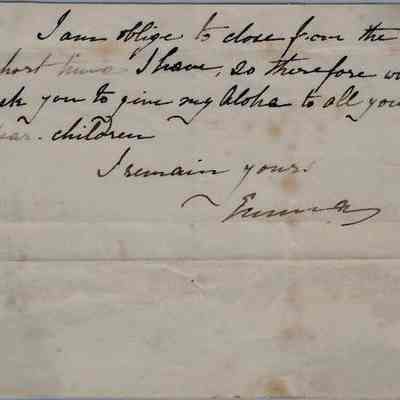 I am oblige to close from the
short time I have, so therefore
ask you to give my Aloha to all you
dear children
I remain yours
Emma